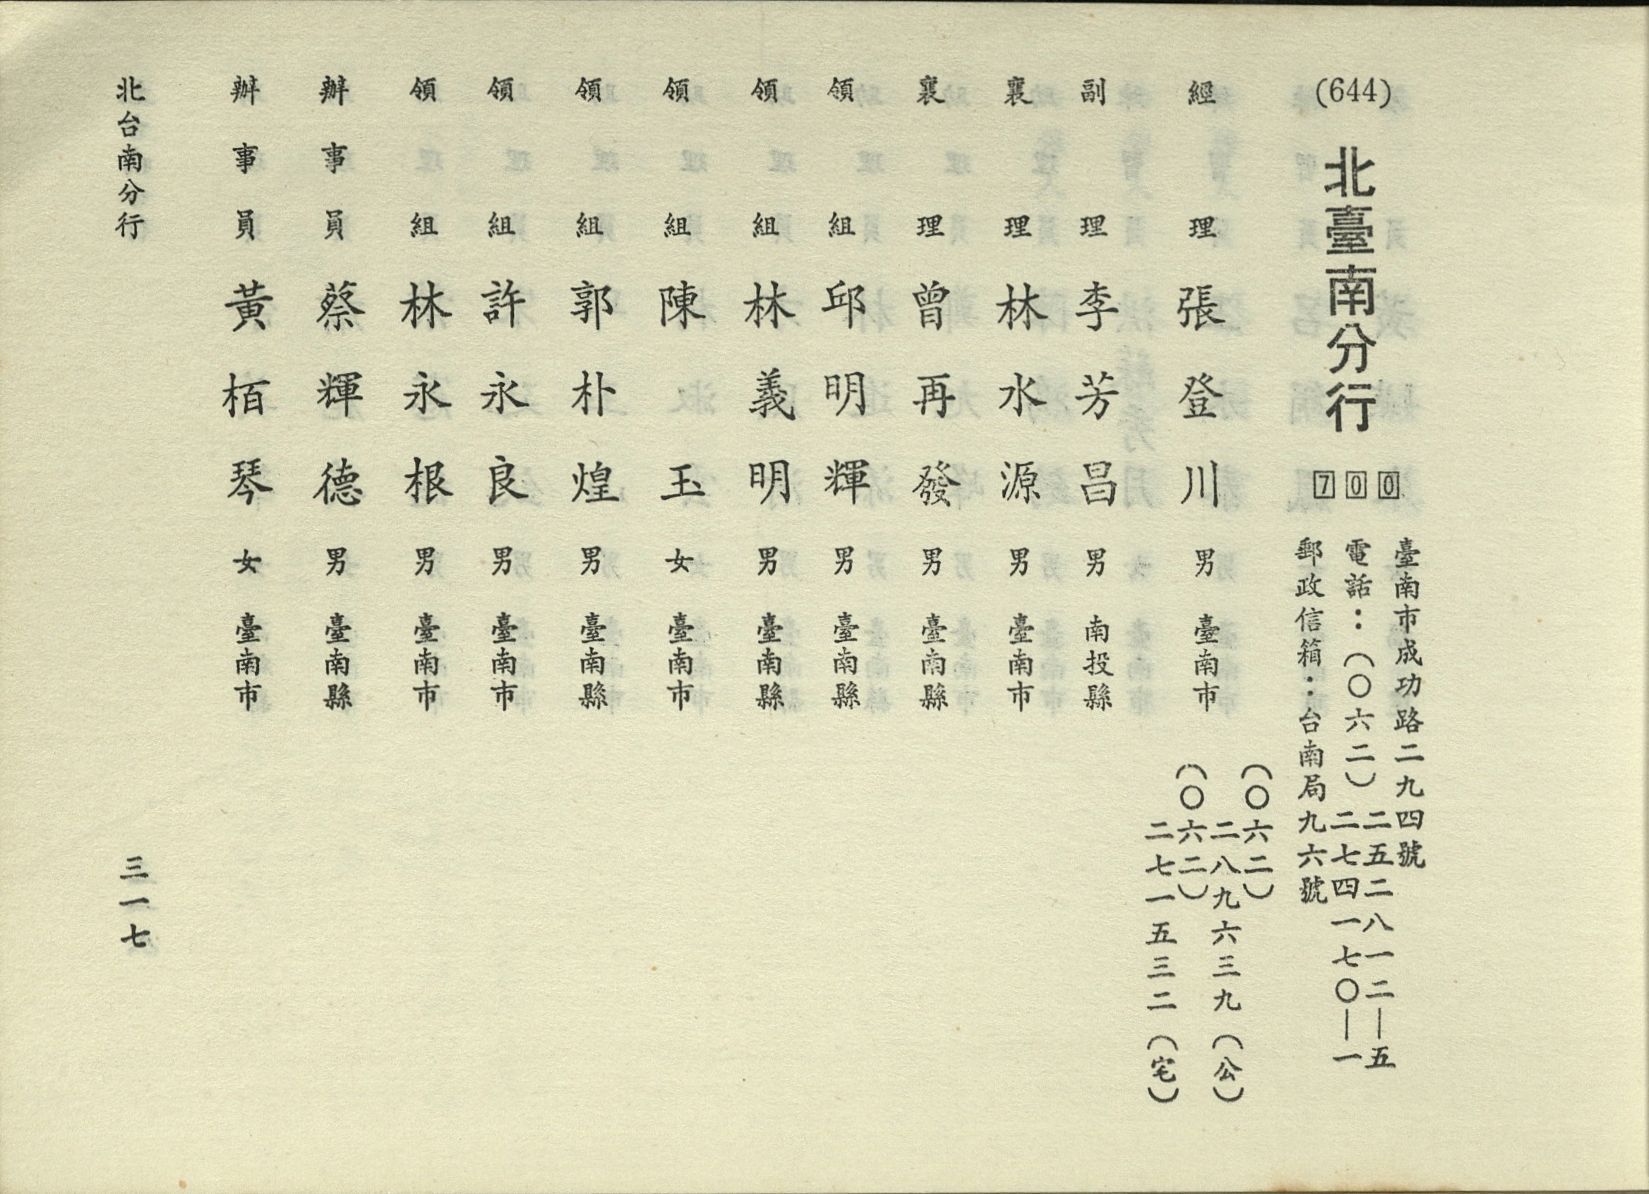 (644) 北臺南分行 700
臺南市成功路二九四號
電話：（〇六二）二五二八一二—五
二七四一七〇—一
郵政信箱：台南局九六號
經理 張登川 男 臺南市
（〇六二）二八九六三九（公）
（〇六二）二七一五三二（宅）
副理 李芳昌 男 南投縣
襄理 林水源 男 臺南市
襄理 曾再發 男 臺南縣
領組 邱明輝 男 臺南縣
領組 林義明 男 臺南縣
領組 陳玉 女 臺南市
領組 郭朴煌 男 臺南縣
領組 許永良 男 臺南市
領組 林永根 男 臺南市
辦事員 蔡輝德 男 臺南縣
辦事員 黃栢琴 女 臺南市
北台南分行
三一七